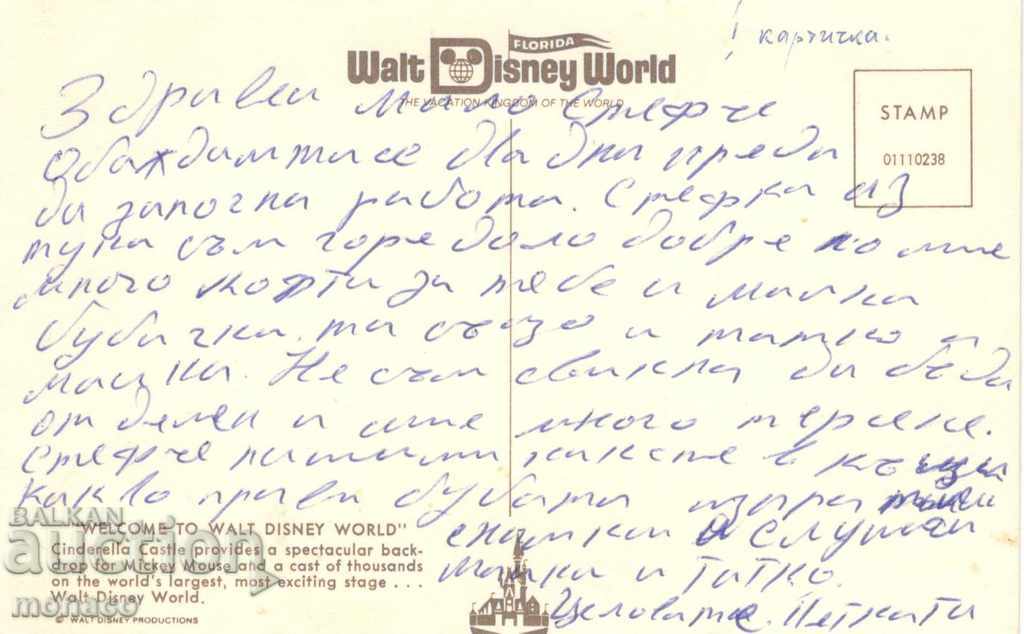 ! картичка.
FLORIDA
Walt Disney World
THE VACATION KINGDOM OF THE WORLD
STAMP
01110238
Здравей мило Стефче
Обаждамтисе два дни преди
да започна работа. Стефка аз
тука съм горе доло добре но ми е
много за тебе и малка
бубачка та също и татко и
майка. Не съм свикнал да бъда
отделен и ми е много
Стефче пишими как сте в къщи
какво прави бубата изпрати ми
снимки и слушай
майка и татко.
Целоватe
"WELCOME TO WALT DISNEY WORLD"
Cinderella Castle provides a spectacular back-
drop for Mickey Mouse and a cast of thousands
on the world's largest, most exciting stage . . .
Walt Disney World.
© WALT DISNEY PRODUCTIONS
BALKAN
auction
monaco